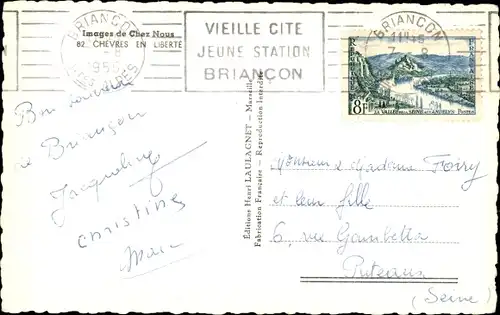 Images de Chez Nous
82. CHÈVRES EN LIBERTÉ
BRIANÇON
VIEILLE CITE
JEUNE STATION
BRIANÇON
BRIANÇON
8F
LA VALLÉE DE LA SEINE AUX ANDELYS
Bon souvenir
de Briançon
Jacqueline
Christine
Marc
Éditions Henri LAULAGNET - Marseille
Fabrication Française - Reproduction Interdite
Monsieur & Madame Foiry
et leur fille
6, rue Gambetta
Puteaux
(Seine)